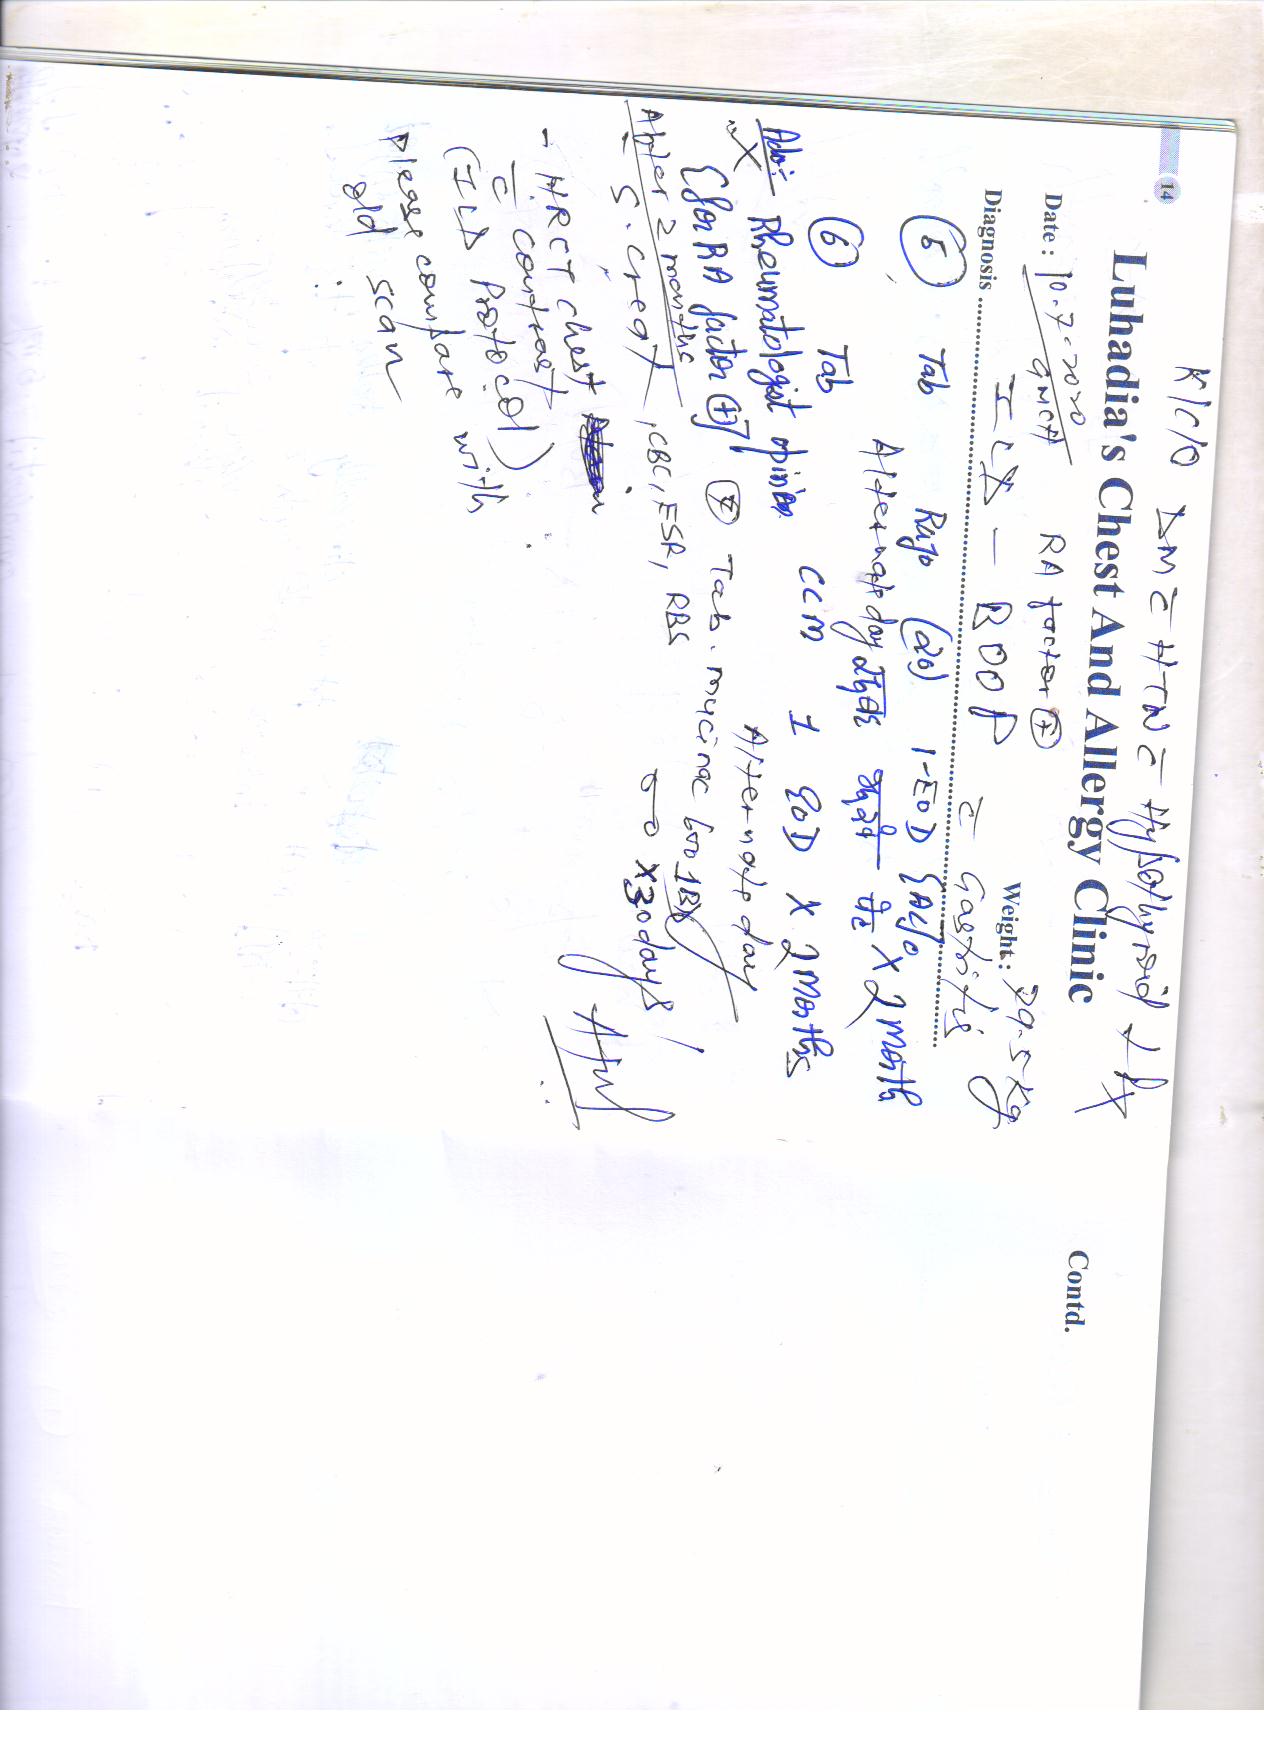 14
K/C/O DM c̄ HTN c̄ Hypothyroid
Luhadia's Chest And Allergy Clinic
Contd.
Date : 10.7.2020 RA factor ⊕ Weight : 79.5 kg
Diagnosis ILD - BOOP c̄ Gastritis
⑤ Tab Razo (20) 1-EOD {A/C
Alternate day X 2 Month
⑥ Tab CCM 1 EOD X 2 Months
Alternate day
Adv:- Rheumatologist opinion
{for RA factor ⊕} ⑦ Tab. mucinac 600 1BD
X 30 days
After 2 months
- S. creat, CBC, ESR, RBS
- HRCT chest
c̄ contrast
(ILD Protocol)
please compare with
old scan